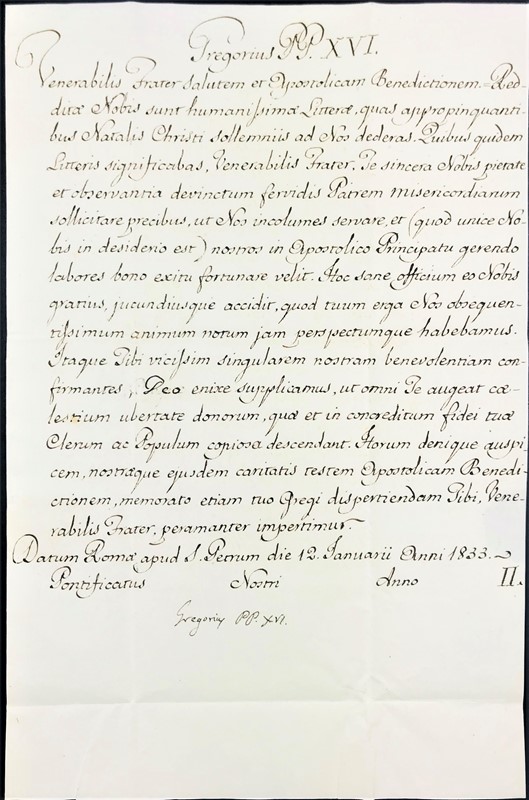 Gregorius PP. XVI.
Venerabilis Frater salutem et Apostolicam Benedictionem. Red-
ditæ Nobis sunt humanissimæ Litteræ, quas appropinquanti-
bus Natalis Christi sollemniis ad Nos dederas. Quibus quidem
Litteris significabas, Venerabilis Frater, Te sincera Nobis pietate
et observantia devinctum fervidis Patrem misericordiarum
sollicitare precibus, ut Nos incolumes servare, et (quod unice No-
bis in desiderio est) nostros in Apostolico Principatu gerendo
labores bono exitu fortunare velit. Hoc sane officium eo Nobis
gratius, jucundiusque accidit, quod tuum erga Nos obsequen-
tissimum animum notum jam perspectumque habebamus.
Itaque Tibi vicissim singularem nostram benevolentiam con-
firmantes, Deo enixe supplicamus, ut omni Te augeat cæ-
lestium ubertate donorum, quæ et in concreditum fidei tuæ
Clerum ac Populum copiosa descendant. Horum denique auspi-
cem, nostræque ejusdem caritatis testem Apostolicam Benedi-
ctionem, memorato etiam tuo Gregi dispertiendam Tibi, Vene-
rabilis Frater, peramanter impertimur.
Datum Romæ apud S. Petrum die 12. Januarii Anni 1833.
Pontificatus Nostri Anno II.
Gregorius PP. XVI.